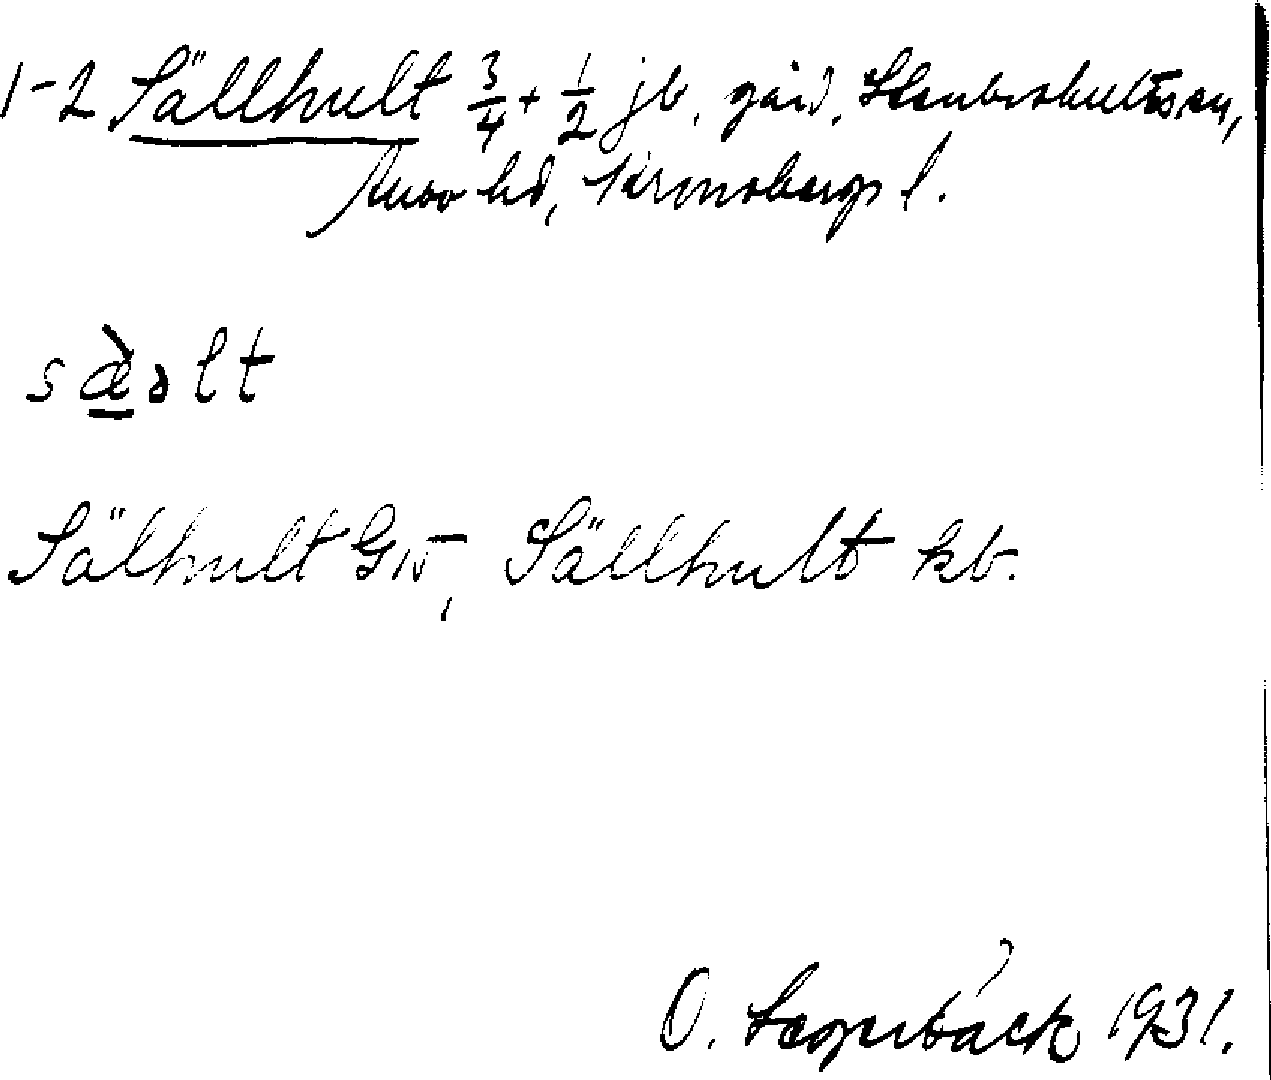 1-2 Sällhult 3/4 + 1/2 jb. gård, Stenbrohults sn,
Allbo hd, Kronobergs l.
sæ̀əlt
Sälhult G15, Sällhult kb.
O. 1931.